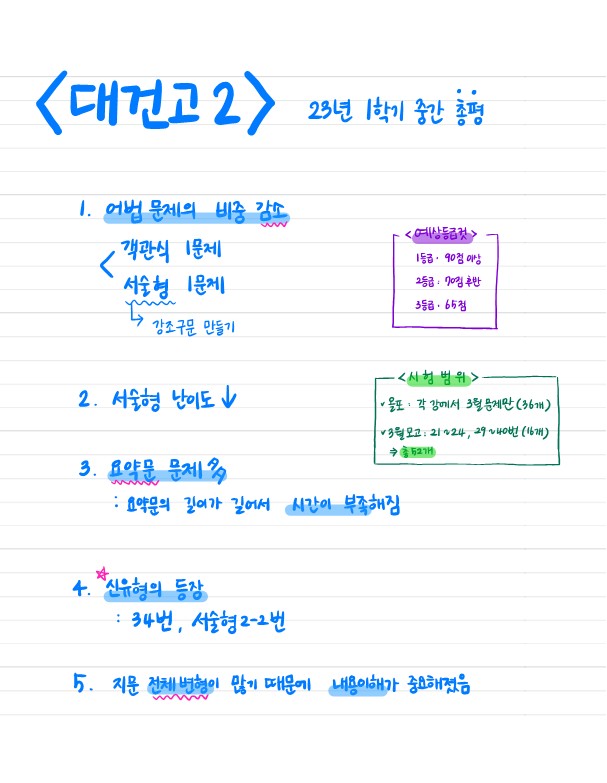 <대건고 2> 23년 1학기 중간 총평
1. 어법 문제의 비중 감소
객관식 1문제
서술형 1문제
→ 강조구문 만들기
<예상등급컷>
1등급 · 90점 이상
2등급 : 70점 후반
3등급 · 65점
2. 서술형 난이도 ↓
<시험범위>
✓ 올포 : 각 강에서 3월 문제만 (36개)
✓ 3월모고 : 21~24, 29~40번 (16개)
⇒ 총 52개
3. 요약문 문제
: 요약문의 길이가 길어서 시간이 부족해짐
4. ☆신유형의 등장
: 34번, 서술형 2-2번
5. 지문 전체변형이 많기 때문에 내용이해가 중요해졌음